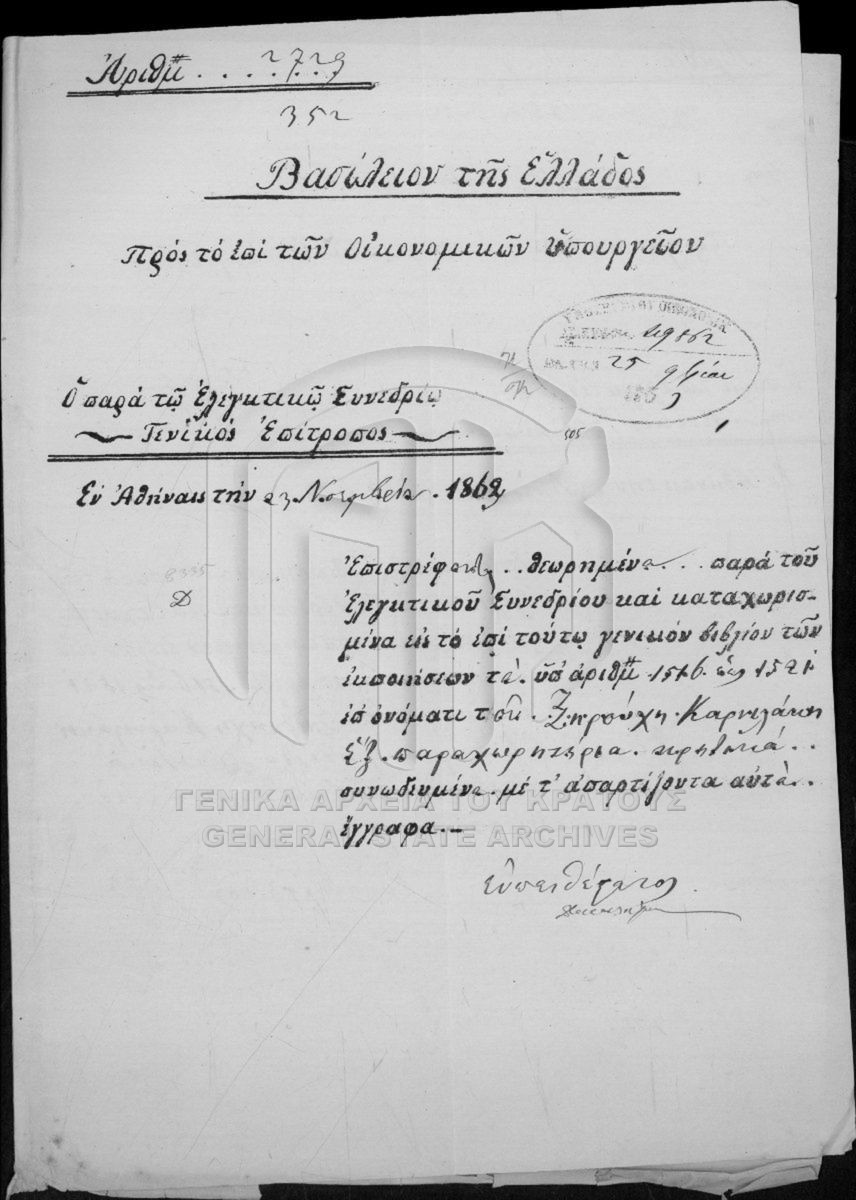 Ἀριθμ. . . . 2729
352
Βασίλειον τῆς Ἑλλάδος
Πρός τό ἐπί τῶν Οἰκονομικῶν Ὑπουργεῖον
25
Ὁ παρά τῷ Ἐλεγκτικῷ Συνεδρίῳ
Γενικός Ἐπίτροπος
505
Ἐν Ἀθήναις τήν 23 Νοεμβρίου 1863
8335
Ἐπιστρέφονται . . θεωρημένα . . . παρά τοῦ
Ἐλεγκτικοῦ Συνεδρίου καί καταχωρισ-
μένα εἰς τό ἐπί τούτῳ γενικόν βιβλίον τῶν
ἐκποιήσεων τά ὑπ' ἀριθμ. 1516 ἕως 1521
ἐπ' ὀνόματι τοῦ
ἕξ παραχωρητήρια . .
συνωδευμένα με τ' ἀπαρτίζοντα αὐτά . .
ἔγγραφα.—
Εὐπειθέστατος
ΓΕΝΙΚΑ ΑΡΧΕΙΑ ΤΟΥ ΚΡΑΤΟΥΣ
GENERAL STATE ARCHIVES